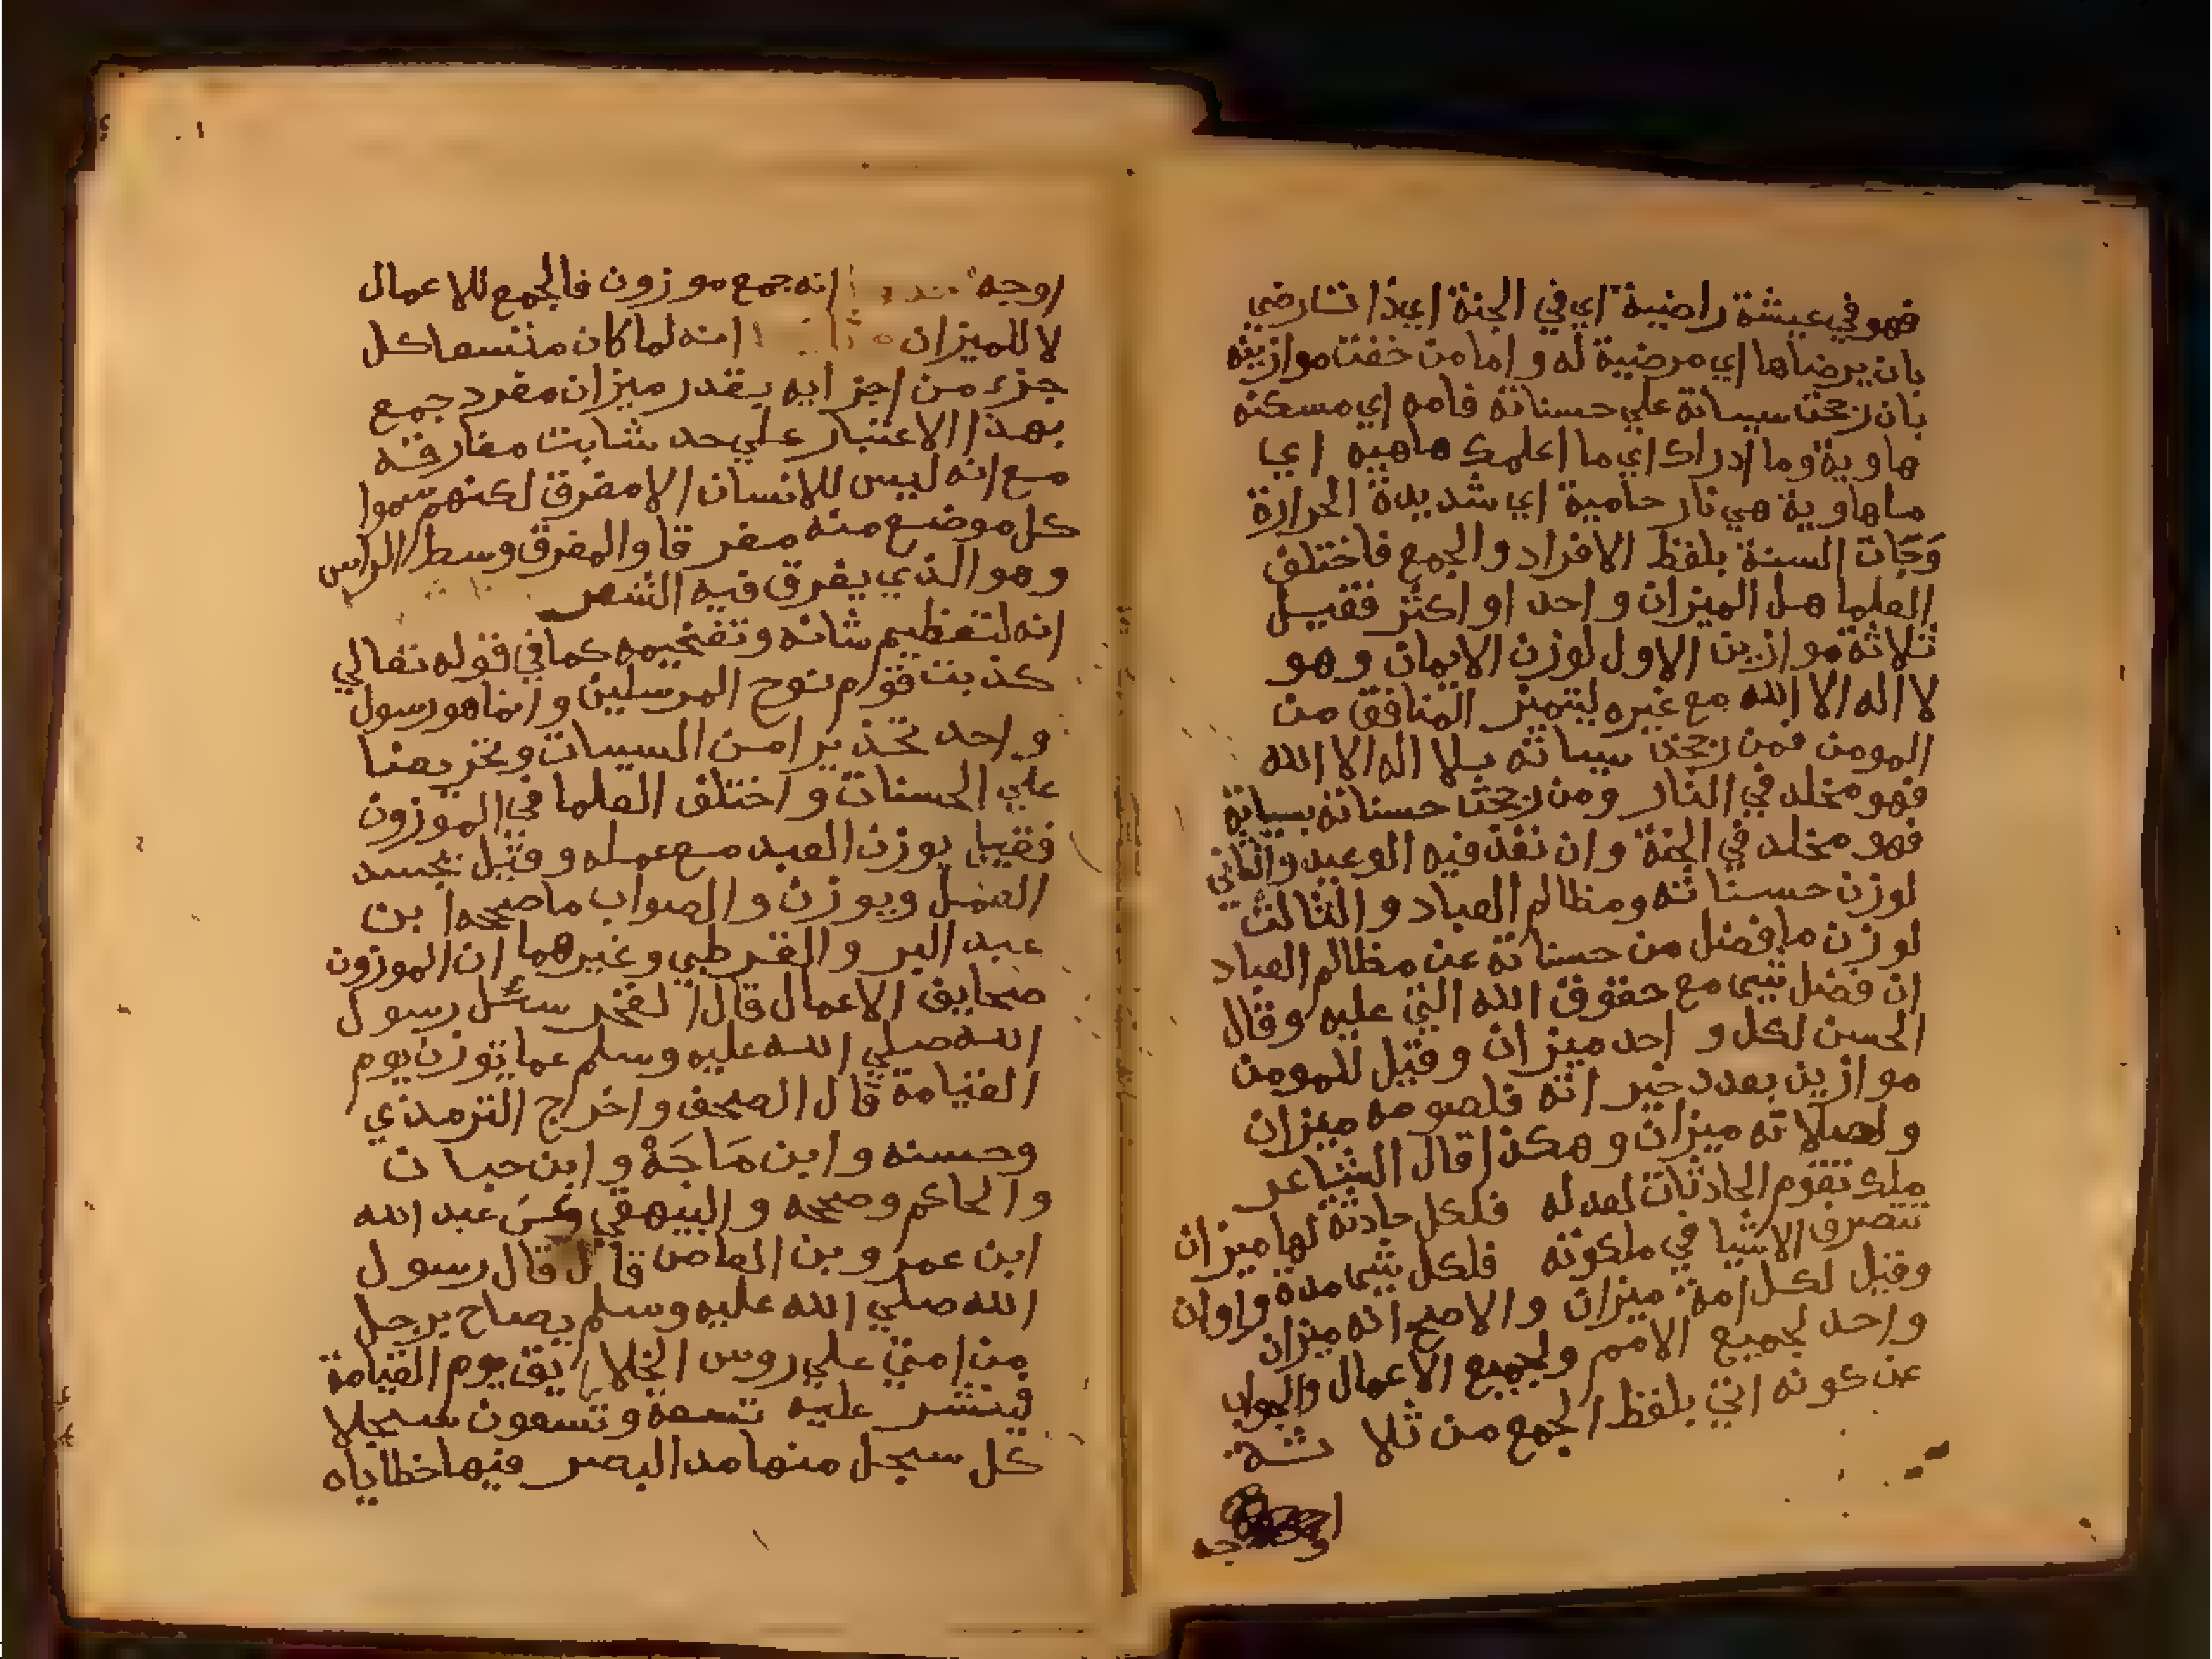 فهو في عيشة راضية اي في الجنة اي ذات رضي
بان يرضاها اي مرضية له و اما من خفت موازينه
بان رجحت سيياته علي حسناته فامه اي مسكنه
هاوية وما ادراك اي ما اعلمك ماهيه اي
ماهاوية هي نار حامية اي شديدة الحرارة
وَجَات السنة بلفظ الافراد والجمع فاختلف
العلما هل الميزان واحد او اكثر فقيل
ثلاثة موازين الاول لوزن الايمان وهو
لا اله الا الله مع غيره ليتميز المنافق من
المومن فمن رجحت سيياته بلا اله الا الله
فهو مخلد في النار ومن رجحت حسناته بسياته
فهو مخلد في الجنة وان نفذ فيه الوعيد والثاني
لوزن حسناته ومظالم العباد والثالث
لوزن ما فضل من حسناته عن مظالم العباد
ان فضل شي مع حقوق الله التي عليه وقال
الحسن لكل واحد ميزان وقيل للمومن
موازين بعدد خيراته فلصومه ميزان
ولصلاته ميزان وهكذا قال الشاعر
ملك تقوم الحادثات لعدله فلكل حادثة لها ميزان
تتصرف الاشيا في ملكوته فلكل شي مدة واوان
وقيل لكل امة ميزان والاصح انه ميزان
واحد لجميع الامم ولجميع الاعمال والجواب
عن كونه اتي بلفظ الجمع من ثلاثة
اوجه
اوجه انه جمع موزون فالجمع للاعمال
لا للميزان انه لما كان متسعا كل
جزء من اجزايه بقدر ميزان مفرد جمع
بهذا الاعتبار علي حد شابت مفارقه
مع انه ليس للانسان الا مفرق لكنهم سموا
كل موضع منه مفرقا والمفرق وسط الراس
وهو الذي يفرق فيه الشعر
انه لتعظيم شانه وتفخيمه كما في قوله تعالي
كذبت قوم نوح المرسلين وانما هو رسول
واحد تحذيرا من السيات وتحريضا
علي الحسنات واختلف العلما في الموزون
فقيل يوزن العبد مع عمله وقيل تجسد
العمل ويوزن والصواب ما صححه ابن
عبد البر والقرطبي وغيرهما ان الموزون
صحايف الاعمال قال الفخر سئل رسول
الله صلي الله عليه وسلم عما توزن يوم
القيامة قال الصحف واخرج الترمذي
وحسنه وابن مَاجَةْ وابن حبان
والحاكم وصححه والبيهقي وعن عبد الله
ابن عمرو بن العاص قال قال رسول
الله صلي الله عليه وسلم يصاح برجل
من امتي علي روس الخلايق يوم القيامة
فينشر عليه تسعة وتسعون سجلا
كل سجل منها مد البصر فيها خطاياه